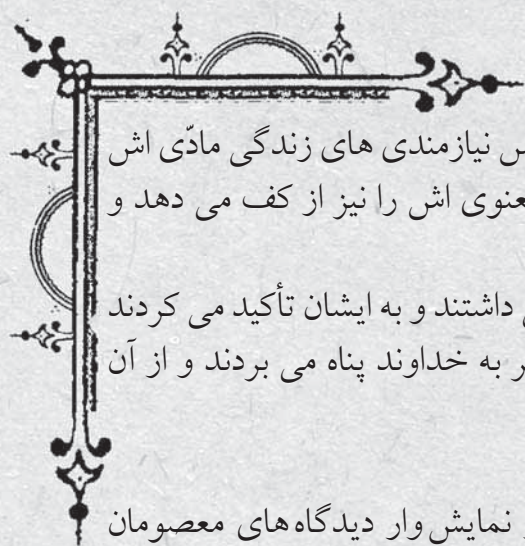 نیازمندی های زندگی مادّی اش
معنوی اش را نیز از کف می دهد و
داشتند و به ایشان تأکید می کردند
به خداوند پناه می بردند و از آن
نمایش وار دیدگاه های معصومان